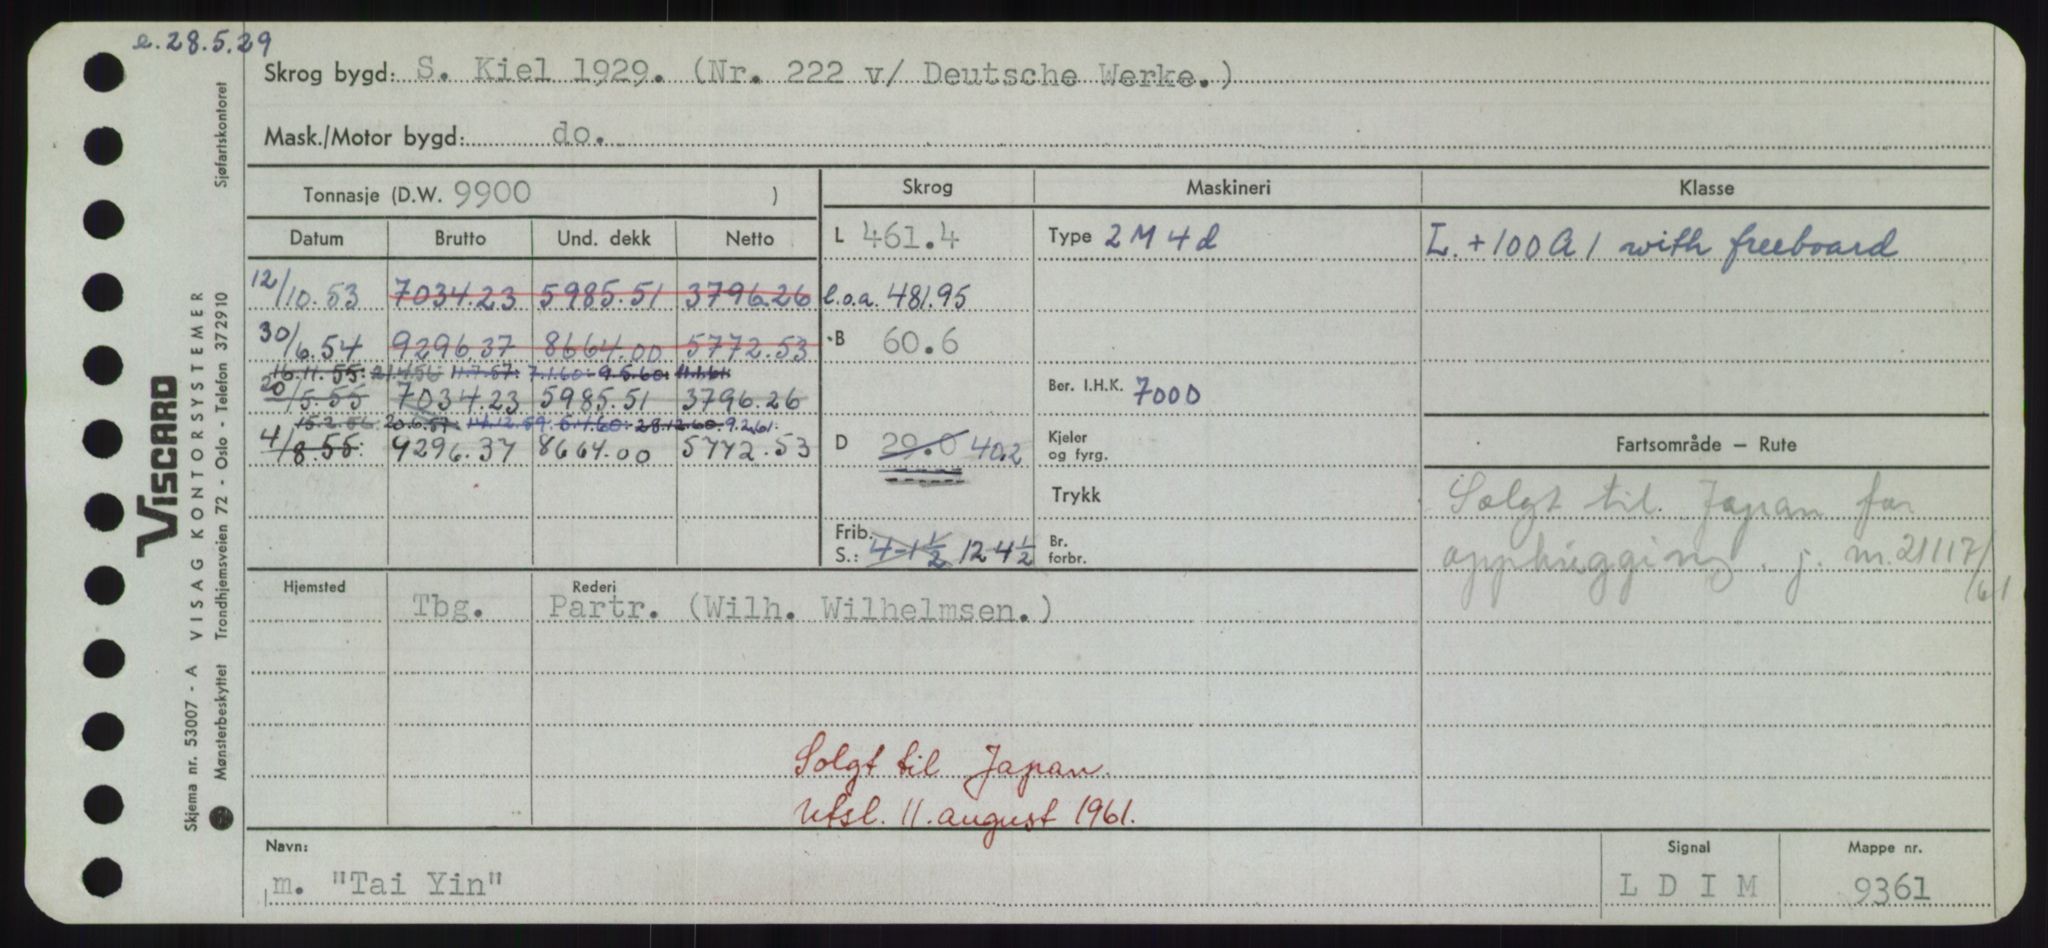 e.28.5.29
Skrog bygd: S. Kiel 1929. (Nr. 222 v/ Deutsche Werke.)
Mask./Motor bygd: do.
Tonnasje (D.W. 9900 )
Skrog Maskineri Klasse
Datum Brutto Und. dekk Netto
L 461.4 Type 2 M 4 d L. +100 A 1 with freeboard
12/10.53 7034.23 5985.51 3796.26 l.o.a. 481.95
30/6.54 9296.37 8664.00 5772.53 B 60.6
16.11.55. 21.4.56 11.7.57. 7.1.60. 9.5.60. 11.1.61
20/5.55 7034.23 5985.51 3796.26 Ber. I.H.K. 7000
15.2.56. 20.6.57. 14.12.59. 28.12.60. 9.2.61.
4/8.55. 9296.37 8664.00 5772.53 D 29.0 40.2 Kjeler og fyrg. Fartsområde – Rute
Trykk
Solgt til Japan for
Frib. S.: 4-1 1/2 12 4 1/2 Br. forbr.
opphugging. j. nr. 21117/61
Hjemsted Tbg. Rederi Partr. (Wilh. Wilhelmsen.)
Solgt til Japan.
Utsl. 11. august 1961.
Navn: Signal Mappe nr.
m. "Tai Yin" L D I M 9361
VISCARD
Skjema nr. 53007 - A VISAG KONTORSYSTEMER
Mønsterbeskyttet Trondhjemsveien 72 - Oslo - Telefon 372910 Sjøfartskontoret